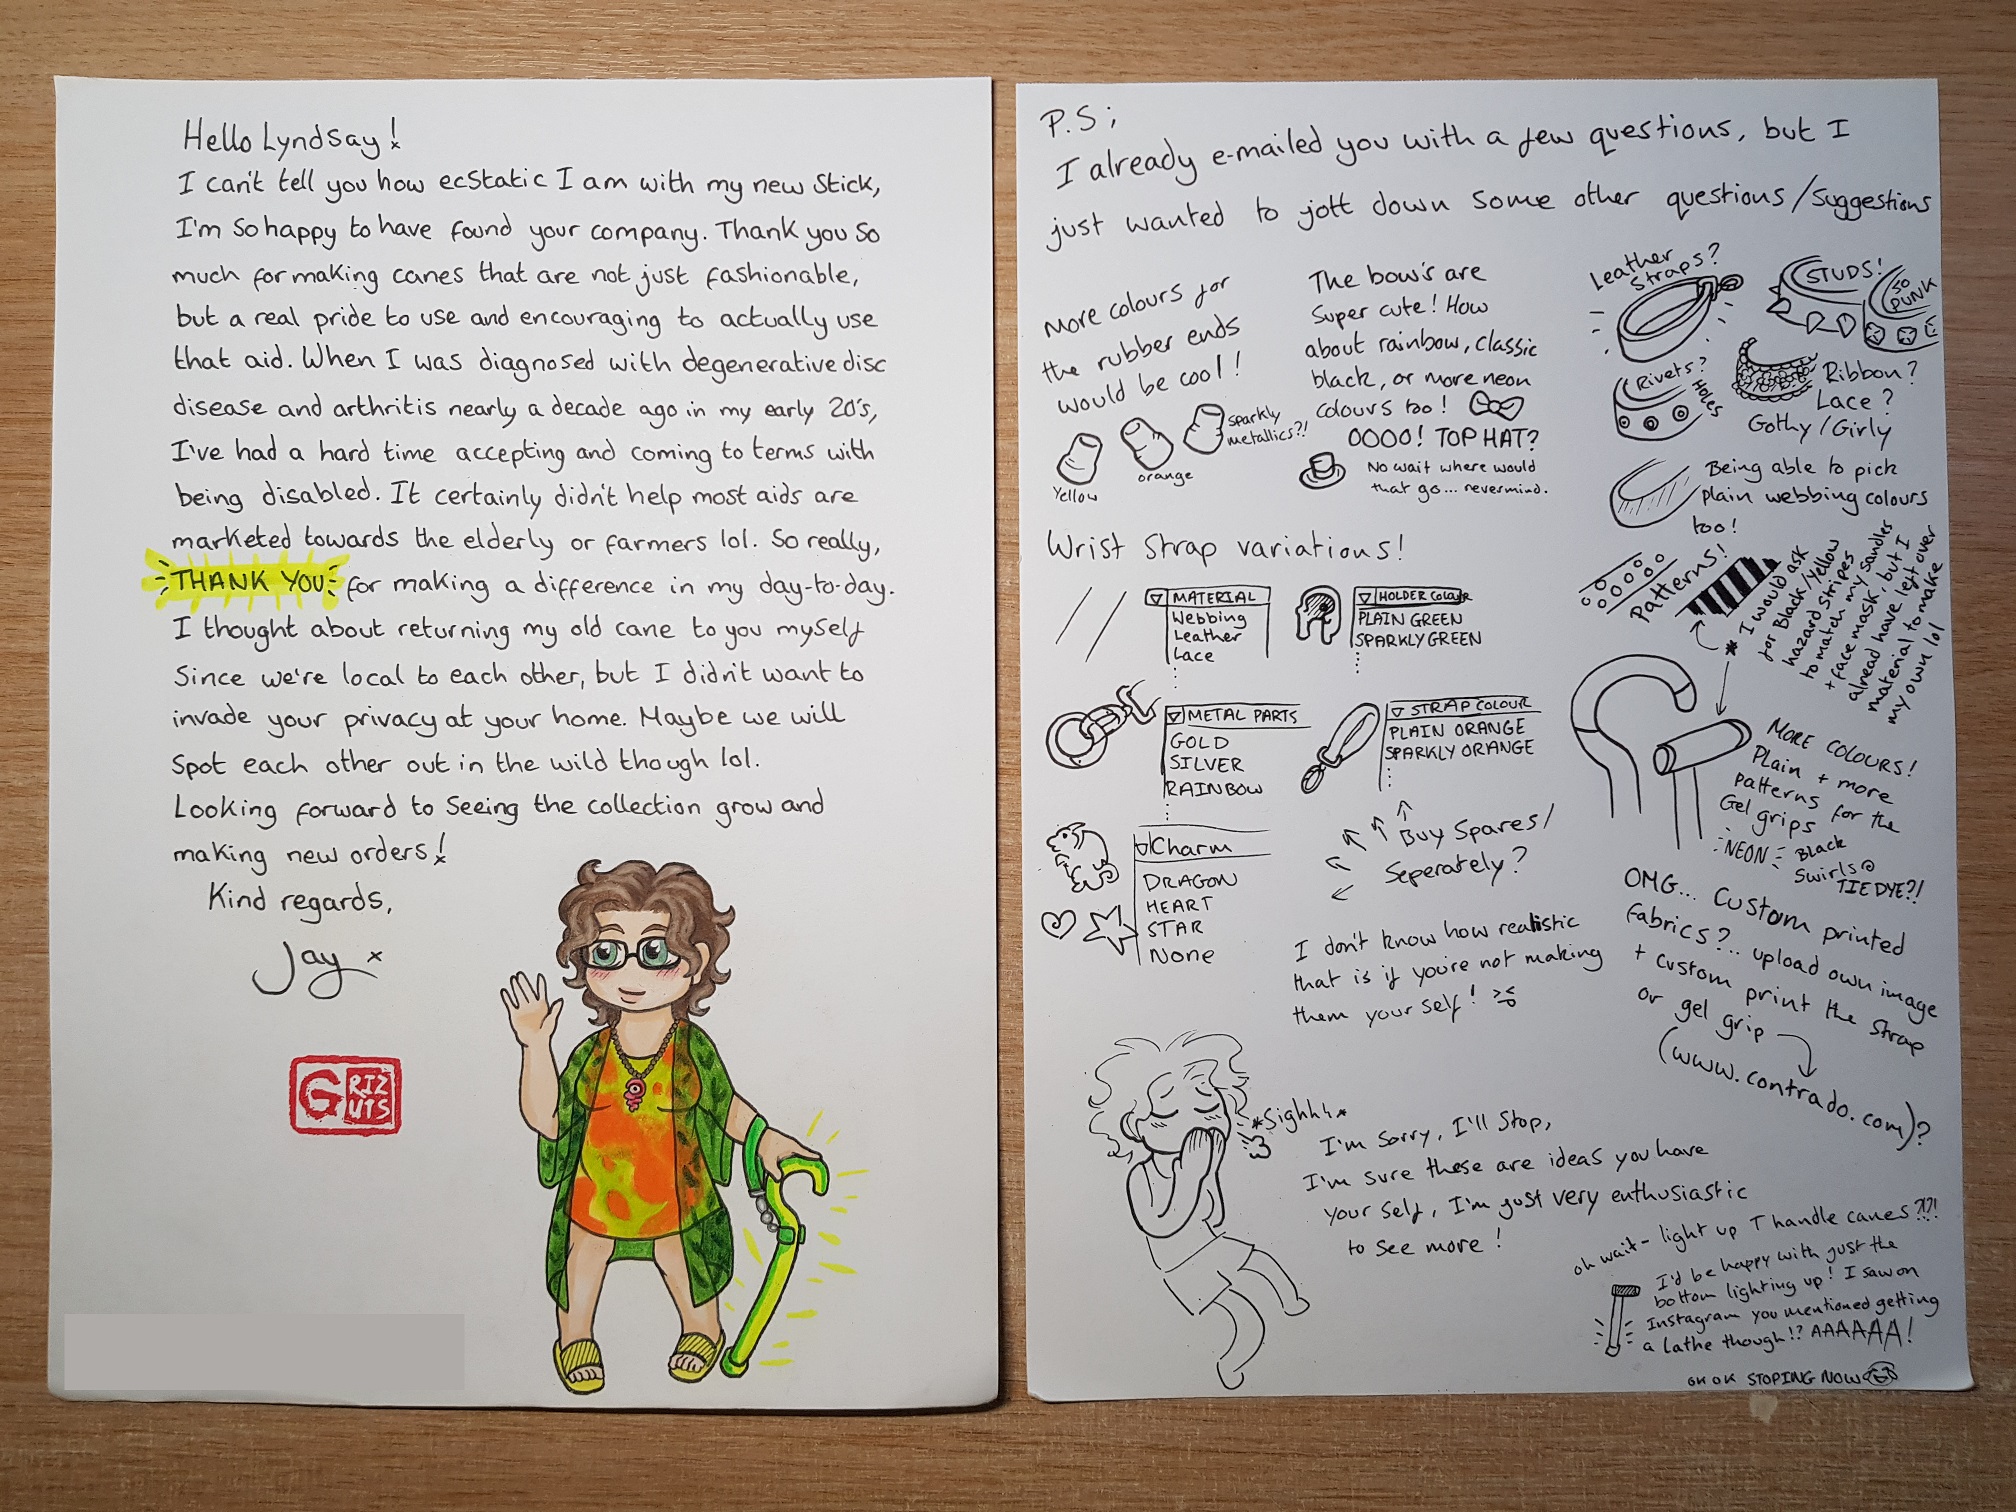 Hello Lyndsay!
I can't tell you how ecstatic I am with my new stick,
I'm so happy to have found your company. Thank you so
much for making canes that are not just fashionable,
but a real pride to use and encouraging to actually use
that aid. When I was diagnosed with degenerative disc
disease and arthritis nearly a decade ago in my early 20's,
I've had a hard time accepting and coming to terms with
being disabled. It certainly didn't help most aids are
marketed towards the elderly or farmers lol. So really,
THANK YOU for making a difference in my day-to-day.
I thought about returning my old cane to you myself
since we're local to each other, but I didn't want to
invade your privacy at your home. Maybe we will
spot each other out in the wild though lol.
Looking forward to seeing the collection grow and
making new orders!
Kind regards,
Jay x
GRIZ
UTS
P.S;
I already e-mailed you with a few questions, but I
just wanted to jott down some other questions/suggestions
More colours for
the rubber ends
would be cool!
Yellow
orange
sparkly
metallics?!
The bow's are
super cute! How
about rainbow, classic
black, or more neon
colours too!
OOOO! TOP HAT?
No wait where would
that go... nevermind.
Leather
straps?
STUDS!
SO
PUNK
Rivets?
HOLES
Ribbon?
Lace?
Gothy/Girly
Being able to pick
plain webbing colours
too!
Patterns!
* I would ask
for Black/Yellow
hazard stripes
to match my sandles
+ face mask, but I
alread have left over
material to make
my own lol
Wrist Strap variations!
MATERIAL
Webbing
Leather
Lace
HOLDER COLOUR
PLAIN GREEN
SPARKLY GREEN
METAL PARTS
GOLD
SILVER
RAINBOW
STRAP COLOUR
PLAIN ORANGE
SPARKLY ORANGE
Charm
DRAGON
HEART
STAR
None
Buy Spares/
Seperately?
I don't know how realistic
that is if you're not making
them your self!
MORE COLOURS!
Plain + more
patterns for the
Gel grips
NEON
Black
Swirls
TIE DYE?!
OMG... Custom printed
fabrics?... upload own image
+ custom print the strap
or gel grip
(www.contrado.com)?
*Sighhh*
I'm sorry, I'll stop,
I'm sure these are ideas you have
your self, I'm just very enthusiastic
to see more!
oh wait - light up T handle canes?!?!
I'd be happy with just the
bottom lighting up! I saw on
Instagram you mentioned getting
a lathe though!? AAAAAA!
OK OK STOPING NOW